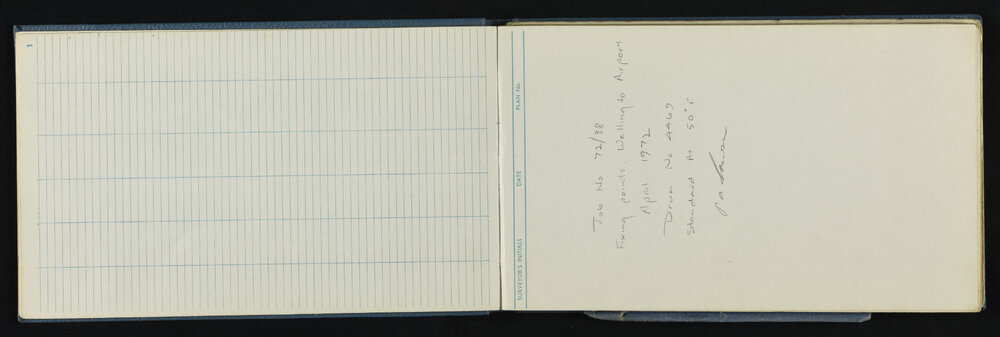 1
SURVEYOR'S INITIALS
DATE
PLAN No.
Job No 72/38
Fixing points. Wellington Airport
April 1972
Drum No 4469
Standard At 50°F